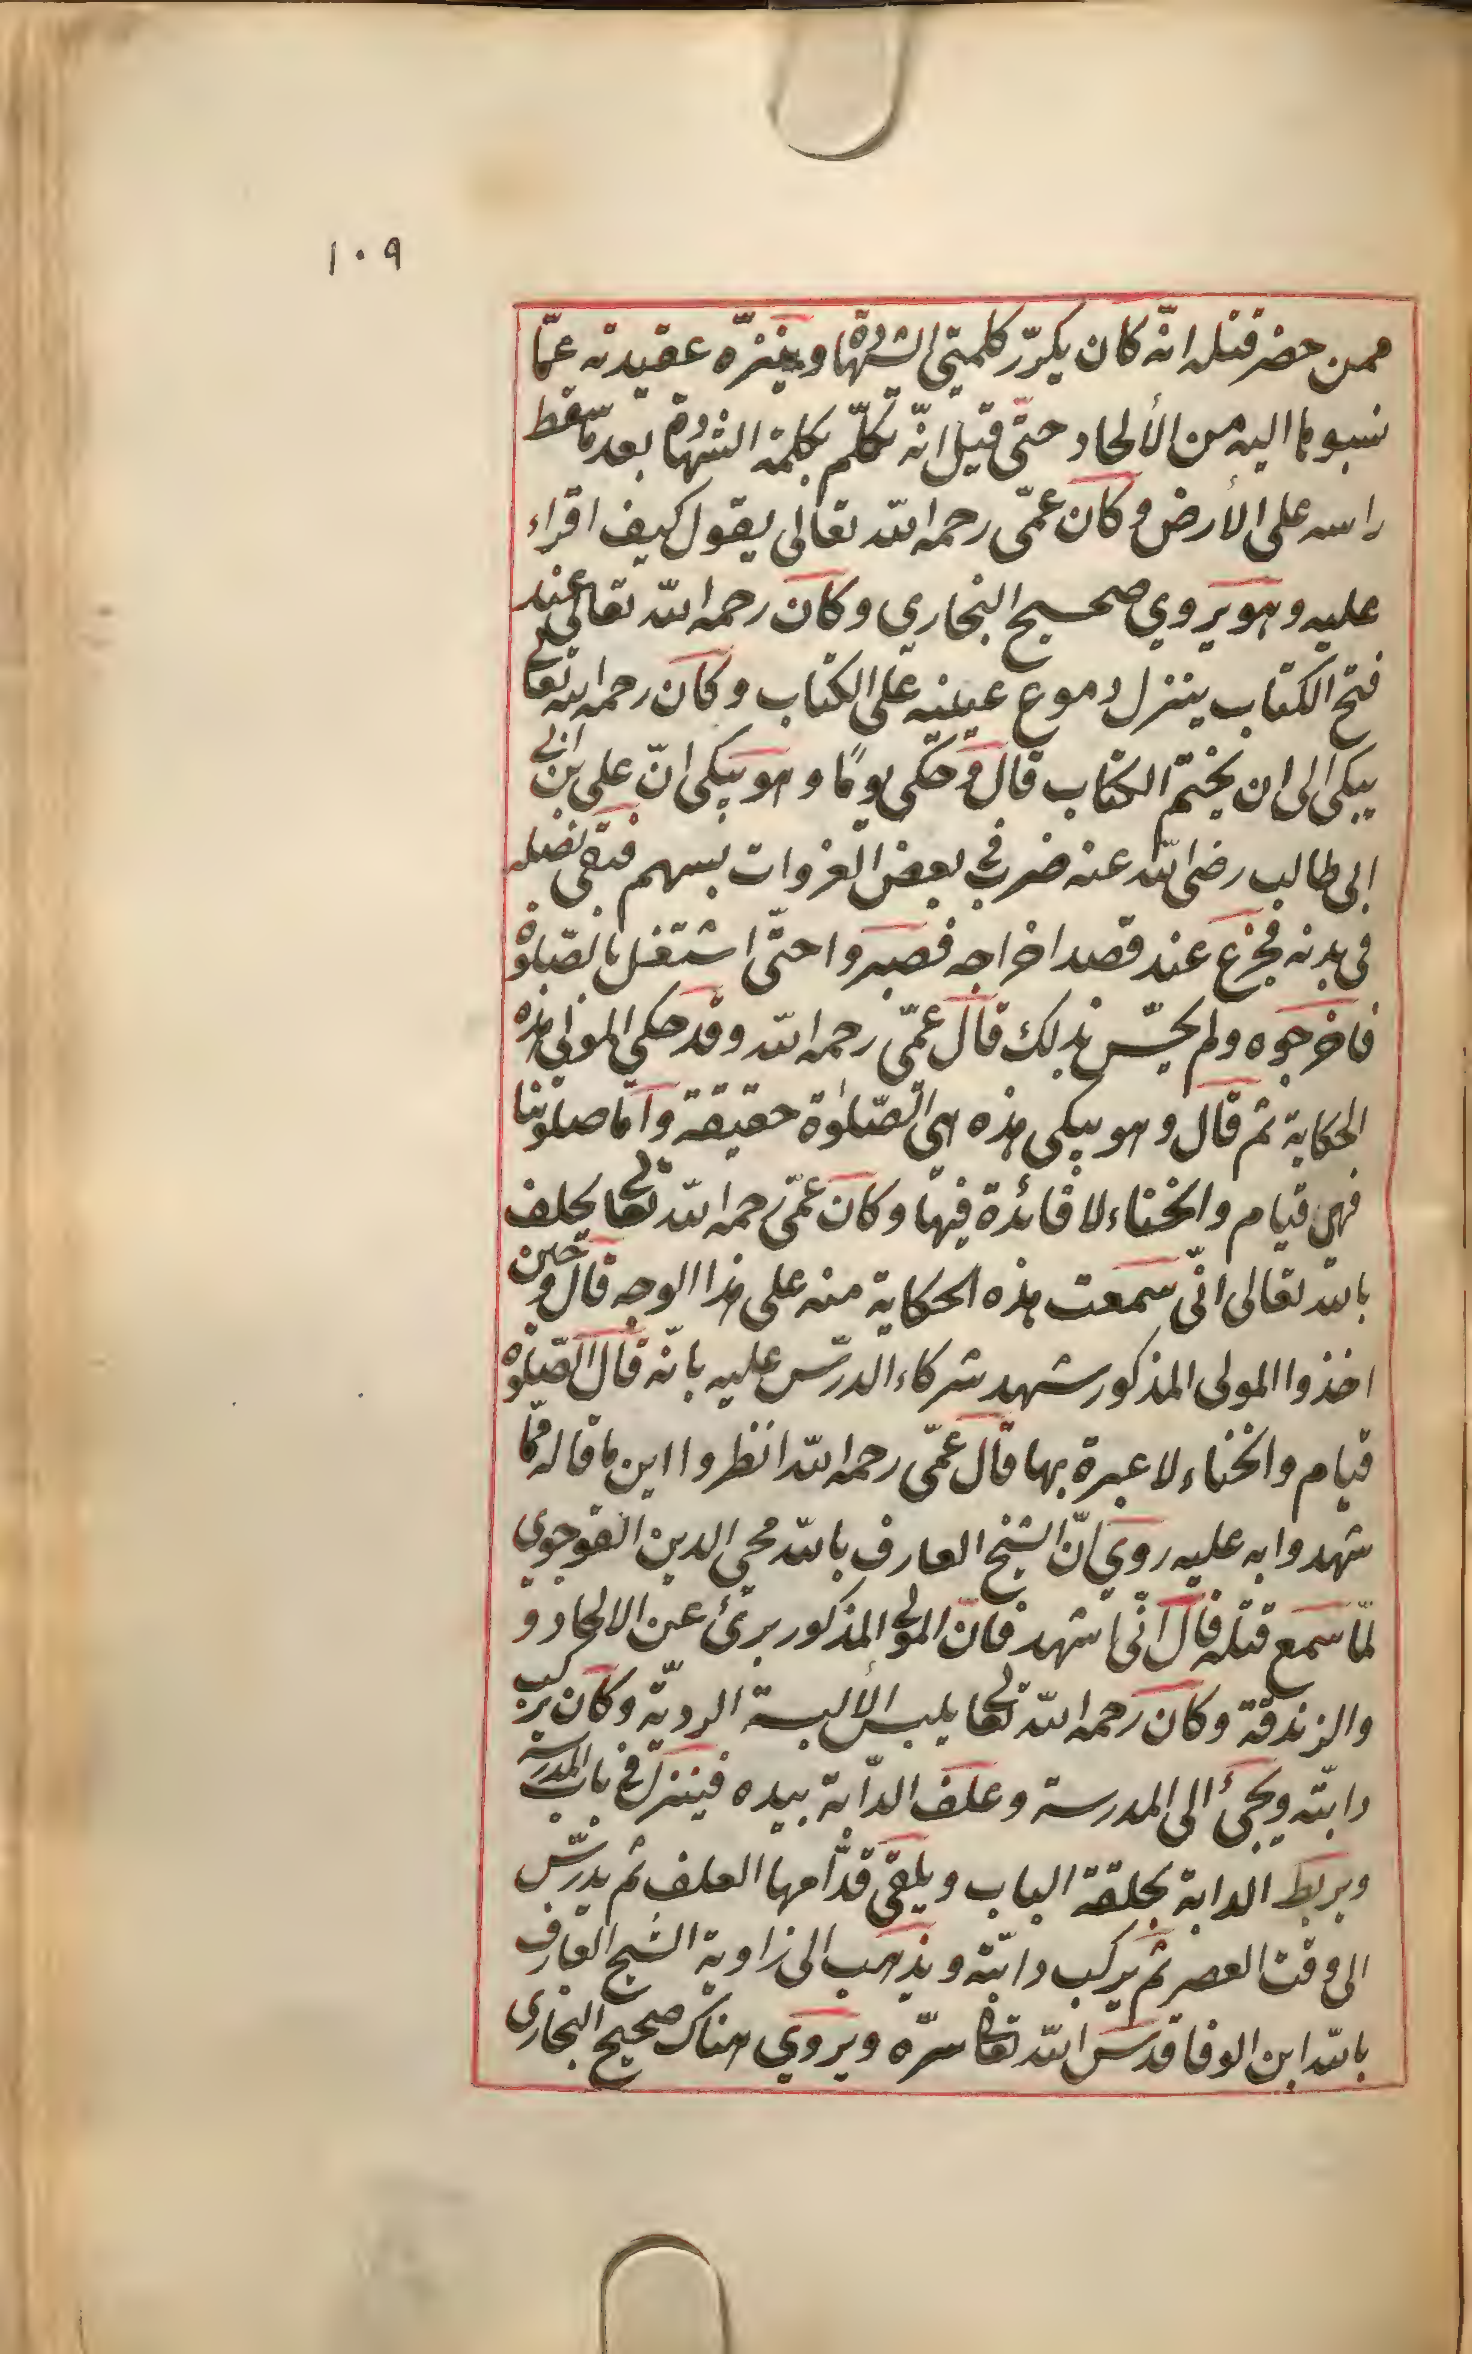 ١٠٩
ممن حضر قتله انّه كان يكرّر كلمتي الشهادة وينزّه عقيدته عمّا
نسبوها اليه من الألحاد حتّى قيل انّه تكلّم بكلمة الشهادة بعد ما سقط
راسه على الأرض وكان عمّي رحمه اللّه تعالى يقول كيف اقراء
عليه وهو يروي صحيح البخاري وكان رحمه اللّه تعالى عند
فتح الكتاب ينزل دموع عينيه على الكتاب وكان رحمه الله تعالى
يبكى الى ان يختم الكتاب قال وحكى يومًا وهو يبكى انّ على بن ابى
ابى طالب رضى اللّه عنه ضرب في بعض الغزوات بسهم فبقى نصله
فى بدنه فجزع عند قصد اخراجه فصبروا حتّى اشتغل بالصّلوة
فاخرجوه ولم يحسّ بذلك قال عمّي رحمه اللّه وقد حكى المولى هذه
الحكاية ثم قال وهو يبكى هذه هي الصّلوٰة حقيقة وامّا صلوتنا
فهى قيام وانحناء لا فائدة فيها وكان عمّي رحمه اللّه تعالى يحلف
باللّه تعالى انّي سمعت هذه الحكاية منه على هذا الوجه قال وحين
اخذوا المولى المذكور شهد شركاء الدرس عليه بانّه قال الصّلوة
قيام وانحناء لا عبرة بها قال عمّي رحمه اللّه انظروا اين ما قاله ممّا
شهدوا به عليه روي انّ الشيخ العارف باللّه محي الدين القوجوي
لمّا سمع قتله قال انّي اشهد فانّ المولى المذكور برئ عن الالحاد و
والزندقة وكان رحمه اللّه تعالى يلبس الألبسة الرديّة وكان يركب
دابّته ويجئ الى المدرسة وعلف الدّابة بيده فينزل في باب المدرسة
ويربط الدابة بحلقة الباب ويلقى قدّامها العلف ثم يدرّس
الى وقت العصر ثم يركب دابّته ويذهب الى زاوية الشيخ العارف
باللّه ابن الوفا قدس اللّه تعالى سرّه ويروي هناك صحيح البخارى